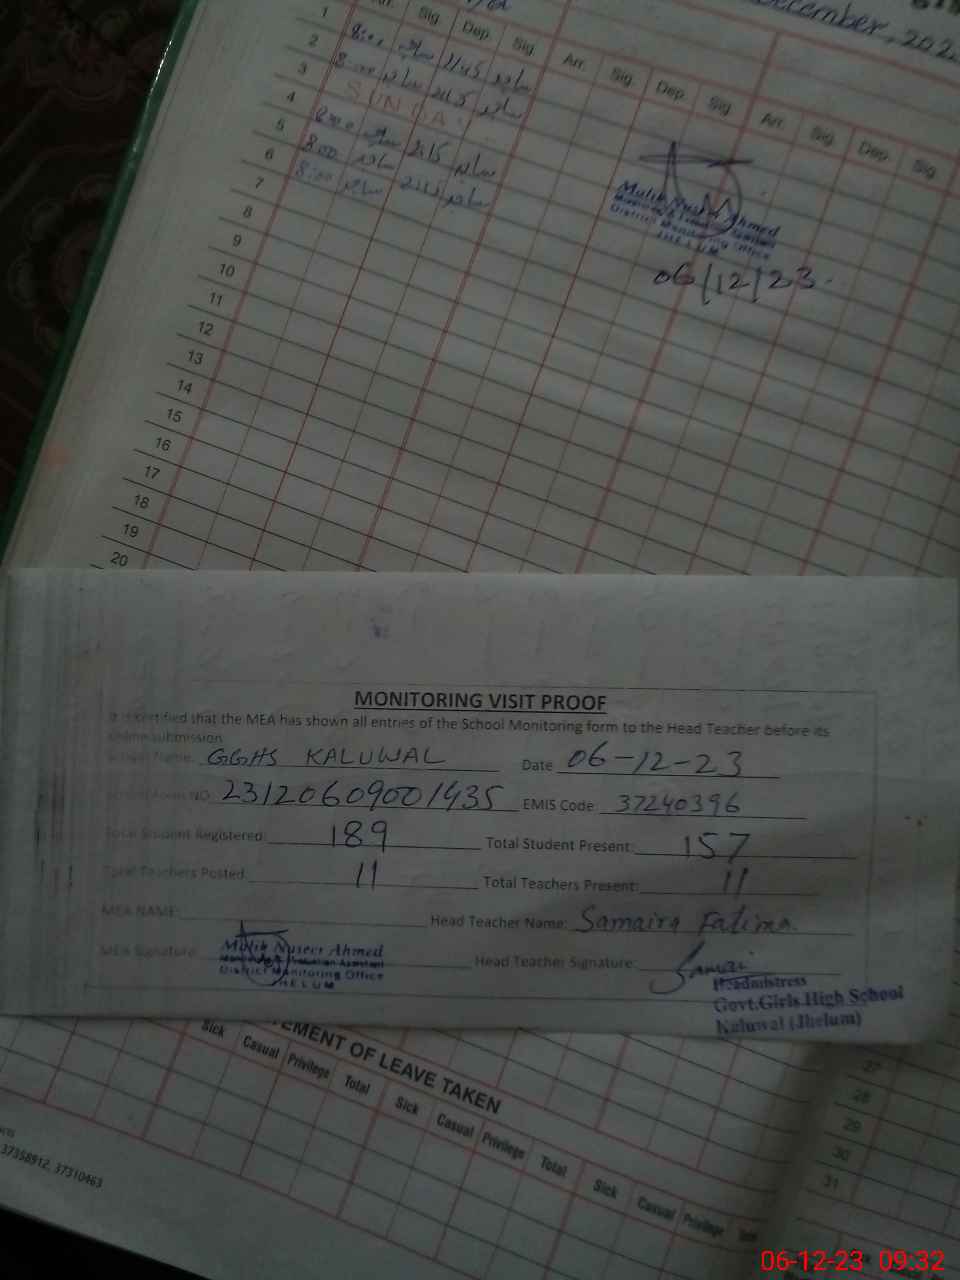 December, 202
Arr. Sig. Dep. Sig. Arr. Sig. Dep. Sig. Arr. Sig. Dep. Sig
1 8:00 2:45
2 8:00 2:15
3 SUNDA
4 8:00 2:15
5 8:00
6 8:00
7
8
9
10
11
12
13
14
15
16
17
18
19
20
Malik Naseer Ahmed
District Monitoring Office
JHELUM
06/12/23
MONITORING VISIT PROOF
It is certified that the MEA has shown all entries of the School Monitoring form to the Head Teacher before its
online submission
School Name: GGHS KALUWAL Date 06-12-23
School Form NO: 23120609001435 EMIS Code: 37240396
Total Student Registered: 189 Total Student Present: 157
Total Teachers Posted: 11 Total Teachers Present: 11
MEA NAME: Head Teacher Name: Samaira Fatima
MEA Signature: Head Teacher Signature:
Malik Naseer Ahmed
Monitoring & Evaluation Assistant
District Monitoring Office
JHELUM
Headmistress
Govt.Girls High School
Kaluwal (Jhelum)
EMENT OF LEAVE TAKEN
Sick Casual Privilege Total Sick Casual Privilege Total Sick Casual Privilege
27
28
29
30
31
37358912, 37310463
06-12-23 09:32